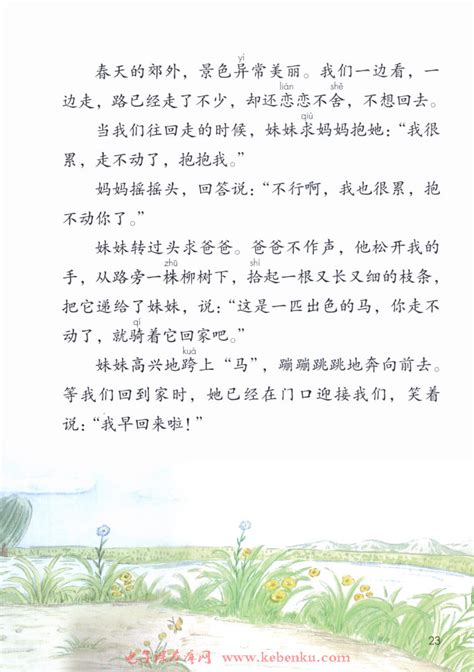 yì
春天的郊外，景色异常美丽。我们一边看，一
liàn shě
边走，路已经走了不少，却还恋恋不舍，不想回去。
qiú
当我们往回走的时候，妹妹求妈妈抱她：“我很
累，走不动了，抱抱我。”
妈妈摇摇头，回答说：“不行啊，我也很累，抱
不动你了。”
妹妹转过头求爸爸。爸爸不作声，他松开我的
zhū shí
手，从路旁一株柳树下，拾起一根又长又细的枝条，
把它递给了妹妹，说：“这是一匹出色的马，你走不
qí
动了，就骑着它回家吧。”
kuà
妹妹高兴地跨上“马”，蹦蹦跳跳地奔向前去。
等我们回到家时，她已经在门口迎接我们，笑着
说：“我早回来啦！”
23
电子课本库网 www.kebenku.com